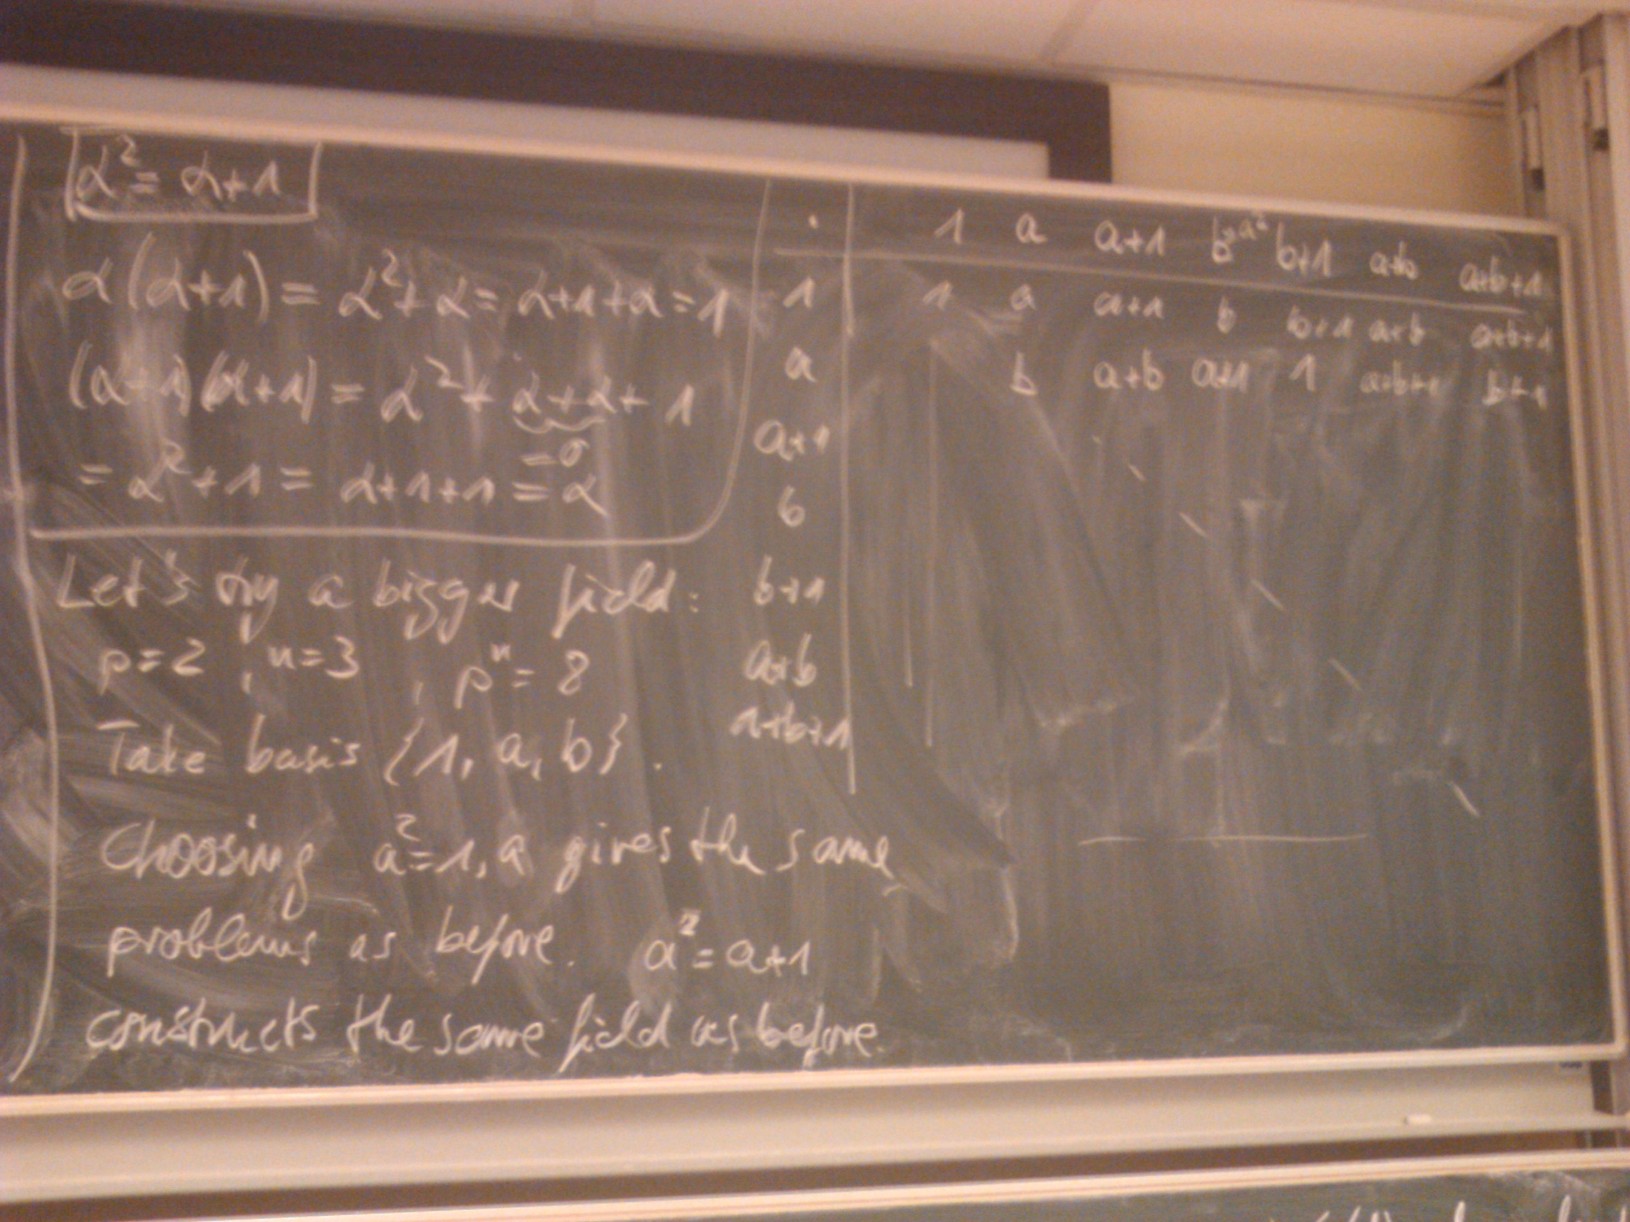 α² = α+1
α(α+1) = α²+α = α+1+α = 1
(α+1)(α+1) = α² + α+α + 1
=0
= α²+1 = α+1+1 = α
Let's try a bigger field:
p=2, n=3, pⁿ = 8
Take basis {1, a, b}.
Choosing a²=1, a gives the same
problems as before. a² = a+1
constructs the same field as before.
· 1 a a+1 b=a² b+1 a+b a+b+1
1 1 a a+1 b b+1 a+b a+b+1
a b a+b a+1 1 a+b+1 b+1
a+1
b
b+1
a+b
a+b+1